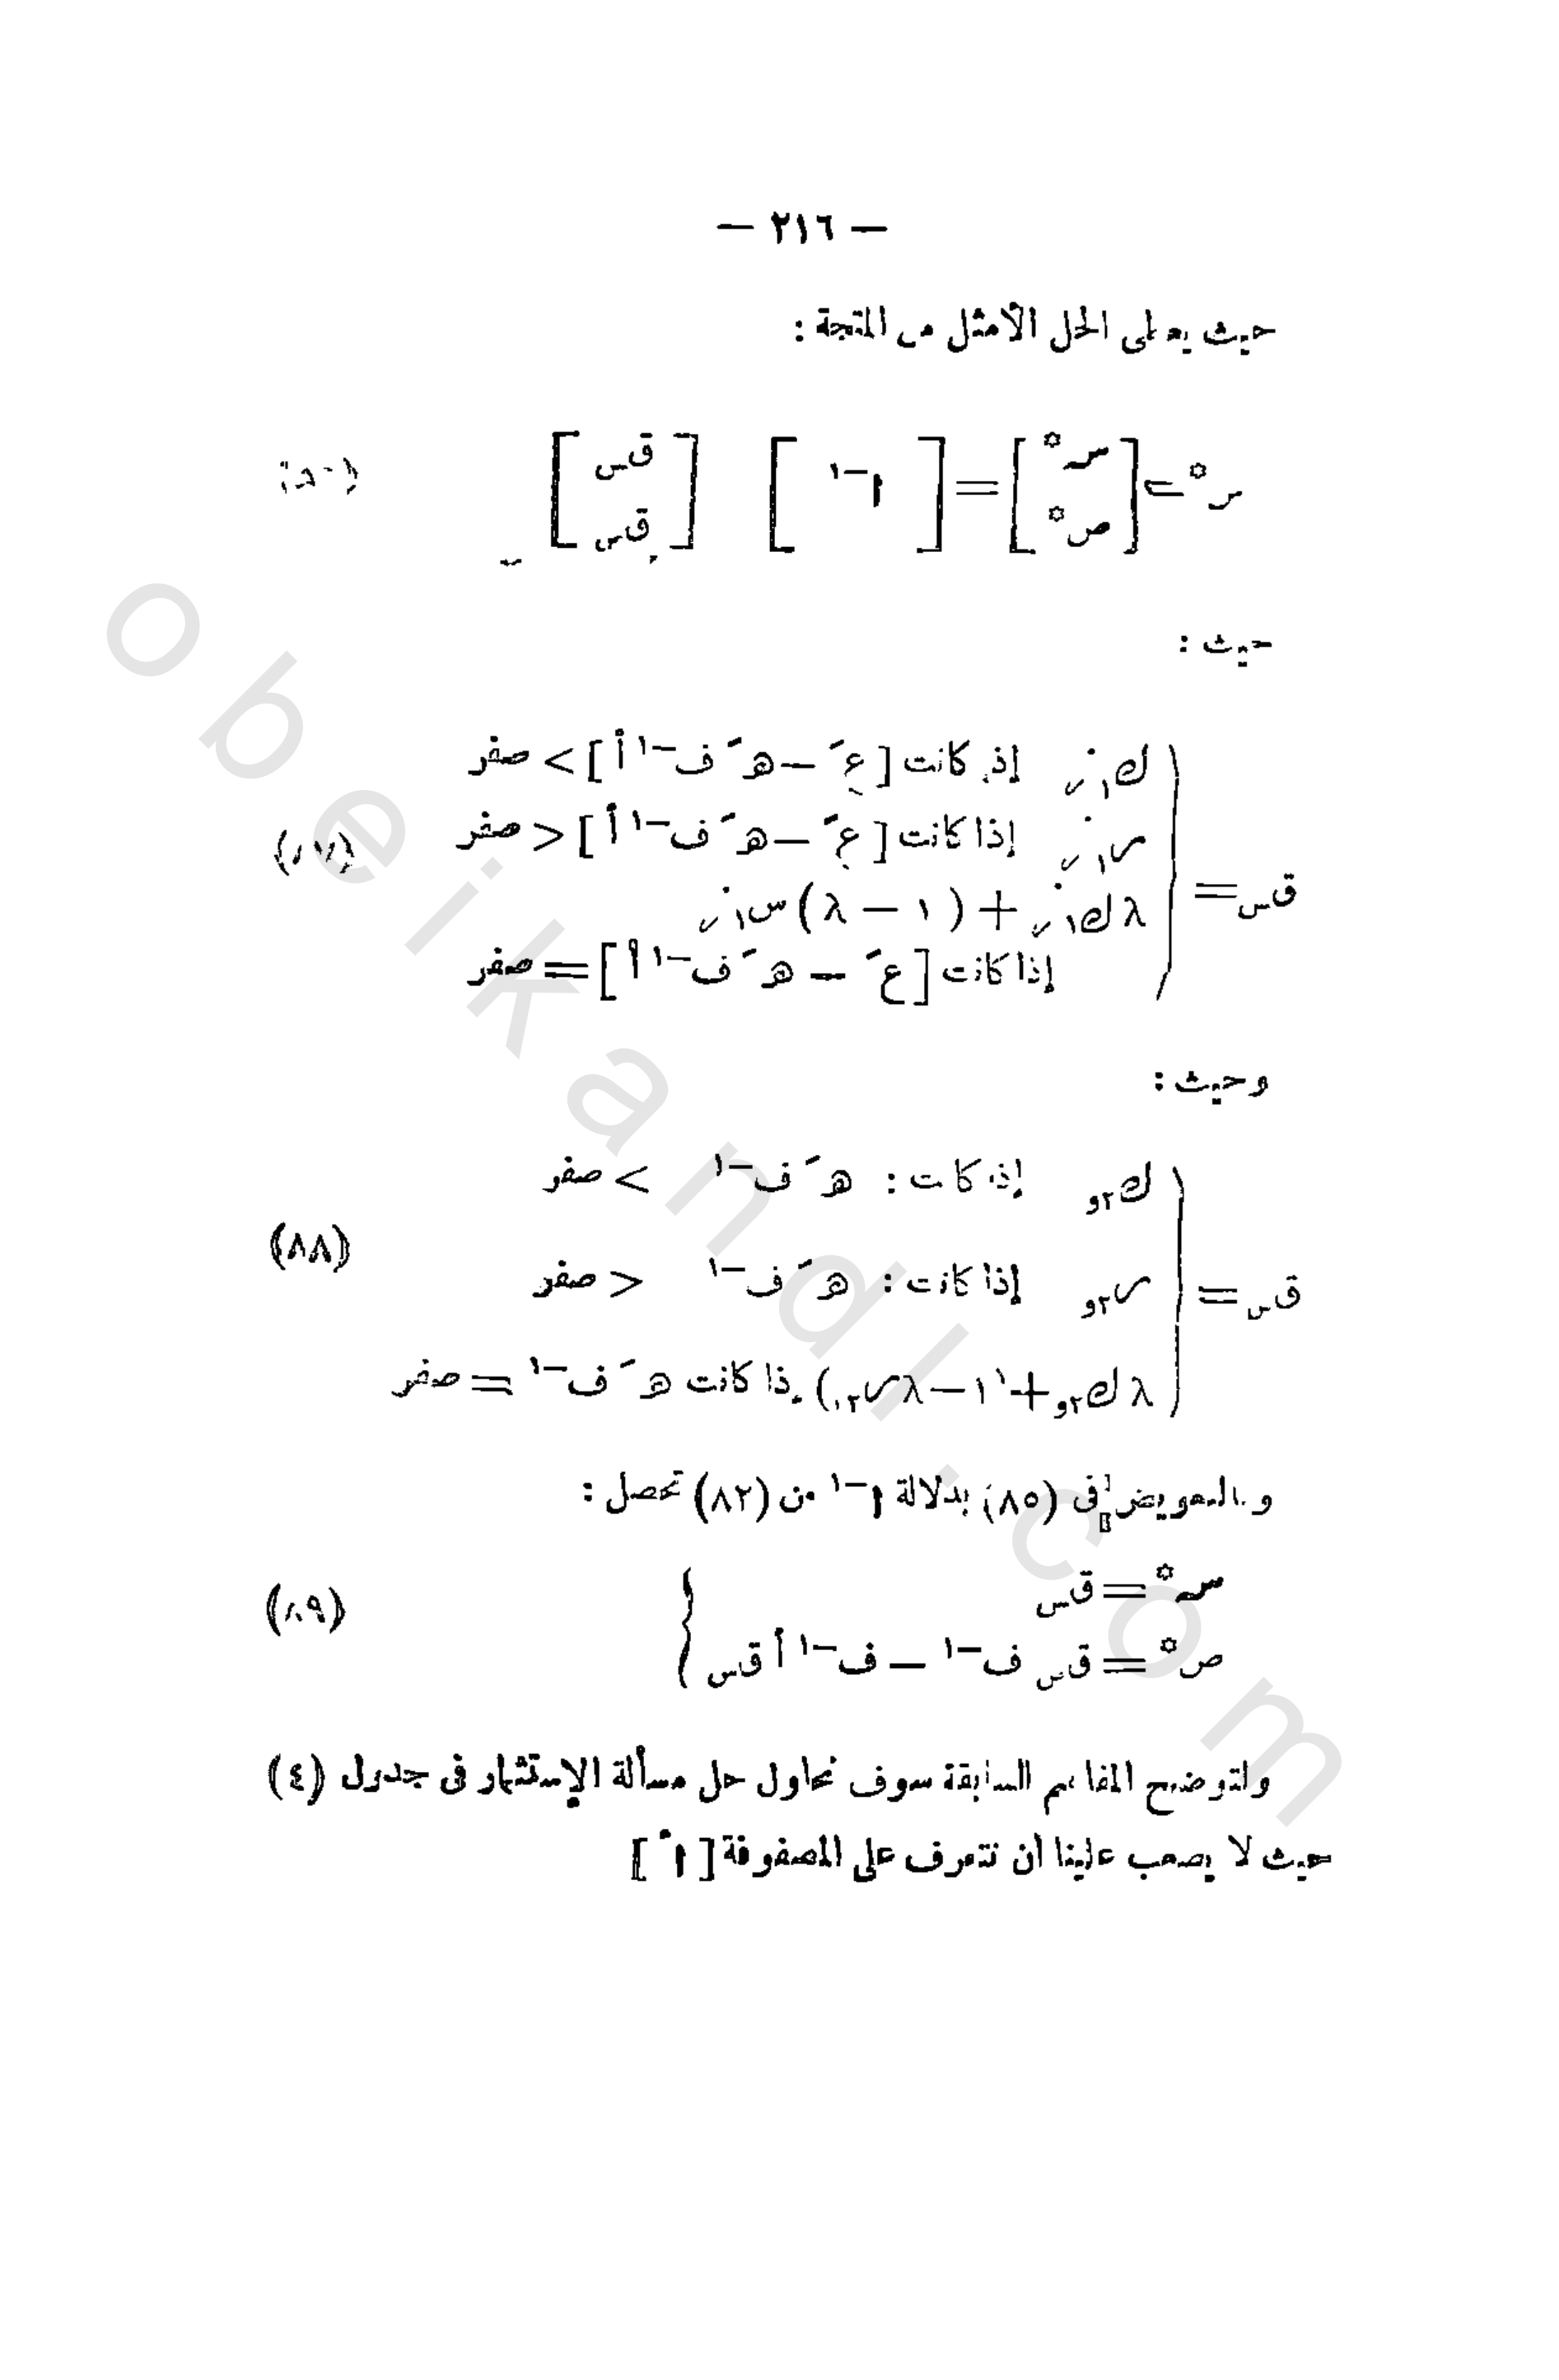 — ٢١٦ —
حيث يعطى الحل الأمثل من المتجة :
س*=[س* ص*]=[ ا−١ ] [ق س ق س]
حيث :
ك١ر إذا كانت [ عَ − هـَ ف−١ أ ] > صفر
س١ر إذا كانت [ عَ − هـَ ف−١ أ ] < صفر
ق س =
λ ك١ر + (١ − λ) س١ر
إذا كانت [ عَ − هـَ ف−١ أ ] = صفر
وحيث :
ك٢و إذا كانت : هـَ ف−١ > صفر
(٨٨)
ق س = س٢و إذا كانت : هـَ ف−١ < صفر
λ ك٢و + (١ − λ س٢و) إذا كانت هـَ ف−١ = صفر
وبالتعويض فى (٨٥) بدلالة ا−١ من (٨٢) نحصل :
س* = ق س
(٨٩)
ص* = ق س ف−١ − ف−١ أ ق س
ولتوضيح المفاهيم السابقة سوف نحاول حل مسألة الإستثمار فى جدول (٤)
حيث لا يصعب علينا أن نتعرف على المصفوفة [ اَ ]
obeikandl.com